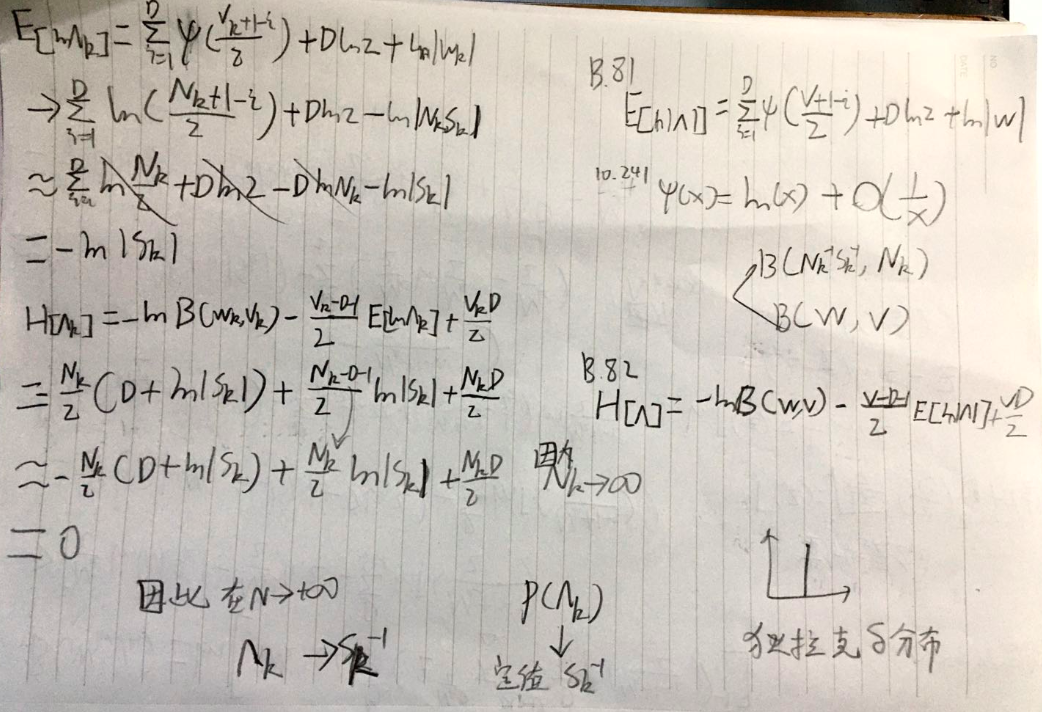 E[ln Λk] = Σ_{i=1}^{D} ψ(\frac{Vk+1-i}{2}) + Dln2 + ln|Wk|
→ Σ_{i=1}^{D} ln(\frac{Nk+1-i}{2}) + Dln2 - ln|NkSk|
≈ Σ_{i=1}^{D} ln\frac{Nk}{2} + Dln2 - DlnNk - ln|Sk|
= -ln|Sk|
H[Λk] = -ln B(Wk,Vk) - \frac{Vk-D-1}{2} E[lnΛk] + \frac{VkD}{2}
= \frac{Nk}{2}(D + ln|Sk|) + \frac{Nk-D-1}{2} ln|Sk| + \frac{NkD}{2}
≈ -\frac{Nk}{2}(D + ln|Sk) + \frac{Nk}{2} ln|Sk| + \frac{NkD}{2} 因为 Nk→∞
= 0
因此 在N→+∞
Λk → Sk^{-1}
B.81
E[ln|Λ|] = Σ_{i=1}^{D} ψ(\frac{V+1-i}{2}) + Dln2 + ln|W|
10.241 ψ(x) = ln(x) + O(\frac{1}{x})
B(Nk^{-1}Sk^{-1}, Nk)
B(W, V)
B.82
H[Λ] = -lnB(W,V) - \frac{V-D-1}{2} E[ln|Λ|] + \frac{VD}{2}
P(Λk)
↓
定值 Sk^{-1}
狄拉克δ分布